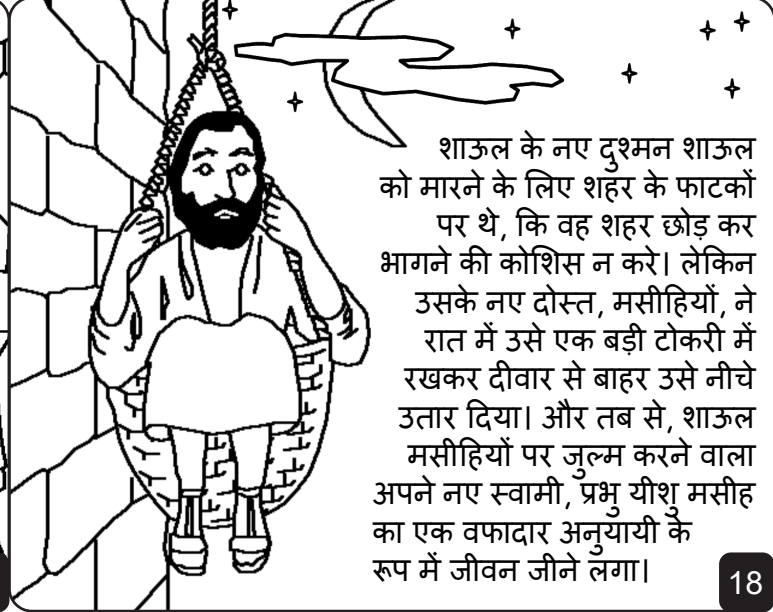 शाऊल के नए दुश्मन शाऊल
को मारने के लिए शहर के फाटकों
पर थे, कि वह शहर छोड़ कर
भागने की कोशिस न करे। लेकिन
उसके नए दोस्त, मसीहियों, ने
रात में उसे एक बड़ी टोकरी में
रखकर दीवार से बाहर उसे नीचे
उतार दिया। और तब से, शाऊल
मसीहियों पर जुल्म करने वाला
अपने नए स्वामी, प्रभु यीशु मसीह
का एक वफादार अनुयायी के
रूप में जीवन जीने लगा।
18